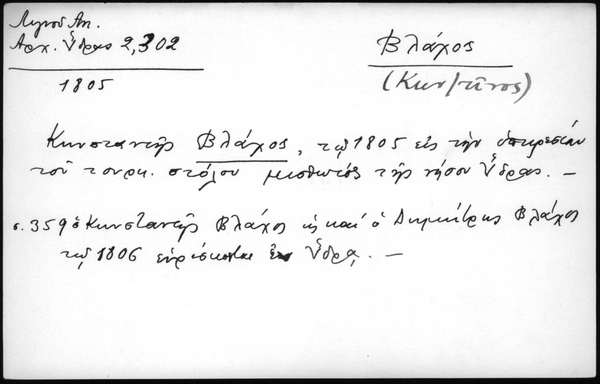 Λιγνοῦ Ἀν.
Ἀρχ. Ὕδρας 2,302
1805
Βλάχος
(Κων/τῖνος)
Κωνσταντῆς Βλάχος, τῷ 1805 εἰς τὴν ὑπηρεσίαν
τοῦ τουρκ. στόλου μισθωτὸς τῆς νήσου Ὕδρας. —
σ. 359 ὁ Κωνσταντῆς Βλάχος ὡς καὶ ὁ Δημήτρης Βλάχος
τῷ 1806 εὑρίσκονται ἐν Ὕδρᾳ. —